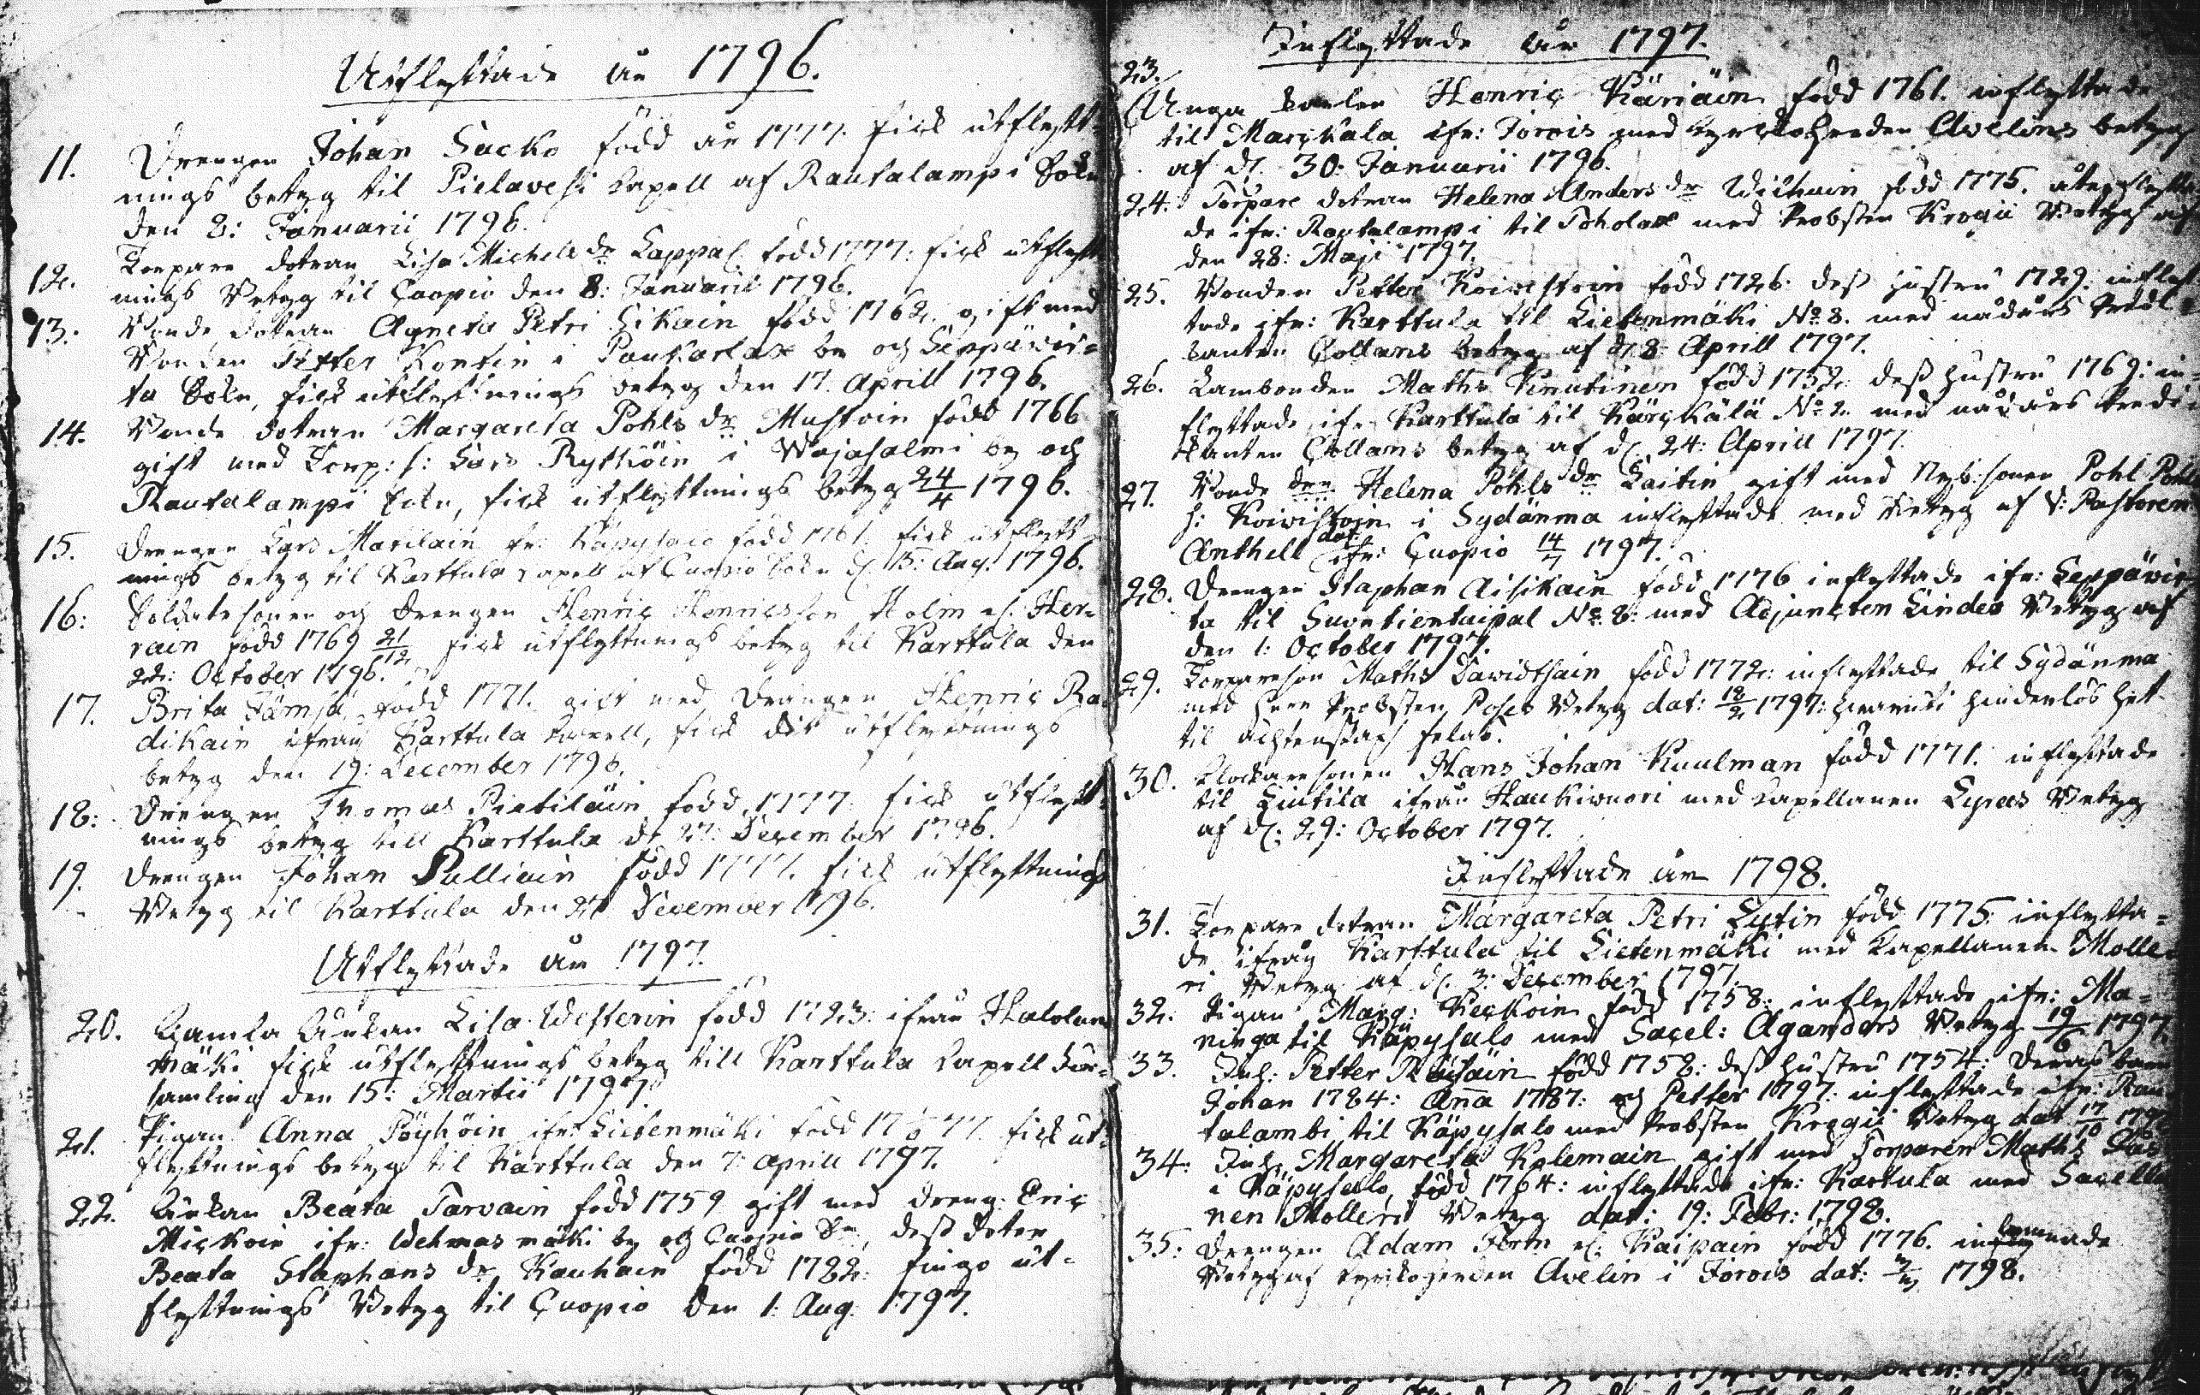 Utflyttade år 1796.
11. Drengen Johan Sacko född år 1777. fick utflytt-
nings betyg til Pielavesi Capell af Rautalampi Sokn
den 8: Januarii 1796.
12. Torpare dotran Lisa Michels dr Lappal. född 1777. fick utflytt
nings Betyg til Cuopio den 8: Januarii 1796.
13. Bonde dotran Agneta Petri Hikain född 1762. gift med
Bonden Petter Kontin i Paukarlax by och Leppävir=
ta Sokn, fick utflyttnings betyg den 17. Aprill 1796.
14. Bonde dotran Margareta Pohls dr Mustoin född 1766
gift med Torp: s: Lars Rythöin i Wajasalmi by och
Rautalampi Sokn, fick utflyttnings betyg 24/4 1796.
15. Drengen Lars Marilain fr: Käpysalo född 1761. fick utflytt
nings betyg til Karttula Capell af Cuopio Sokn d. 15: Aug: 1796.
16: Soldatesonen och Drengen Henric Henricsson Holm el. Her-
rain född 1769 21/12 fick utflyttnings betyg til Karttula den
22: October 1796.
17. Brita Jämsä född 1771. gift med Drengen Henric Ra
dikain ifrån Karttula Capell, fick dit utflyttnings
betyg den 19: December 1796.
18: Drengen Thomas Pietiläin född 1777. fick utflytt
nings betyg till Karttula d: 27: December 1796.
19. Drengen Johan Pulliain född 1777. fick utflyttnings
Betyg til Karttula den 27 December 1796.
Utflyttade år 1797.
20. Gamla Änkan Lisa Westerin född 1723: ifrån Halolan
mäki fick utflyttnings betyg till Karttula Capell För=
samling den 15: Martii 1797.
21. Pigan Anna Pöyhöin ifr: Lietenmäki född fick ut=
flyttnings betyg til Karttula den 7: Aprill 1797.
22. Änkan Beata Tarvain född 1759 gift med Dreng: Eric
Mickoin ifr: Wehmasmäki by och Cuopio Sn, dess doter
Beata Staphans dr Kauhain född 1782: fingo ut-
flyttnings Betyg til Cuopio den 1: Aug: 1797.
Inflyttade år 1797.
23. Unga Karlen Henric Käriäin född 1761. inflyttade
til Marckala ifr: Jorois med Kyrckoherden Avelins betyg
af d. 30: Januarii 1796.
24. Torpare dotran Helena Anders dr född 1775. återflytta
de ifr: Rautalampi til Toholax med Probsten Krogii Betyg af
den 28: Maji 1797.
25. Bonden Petter Koivistoin född 1726. dess hustru 1729: inflyt
tade ifr: Karttula til Lietenmäki No 8. med nådårs Predi-
kanten Collans betyg af d. 8: Aprill 1797.
26. Lambonden Maths Knutinen född 1752. dess hustru 1769: in-
flyttade ifr: Karttula til Kärckälä No 2. med nådårs Predi-
kanten Collans betyg af d. 24: Aprill 1797.
27. Bonde drn Helena Pohls dr Laitin gift med Nyb: sonen Pohl Pohls
s: Koivistoin i Sydänma inflyttade med Betyg af V: Pastoren
Anthell dat: ifr: Cuopio 14/7 1797.
28. Drengen Staphan Aisikain född 1776 inflyttade ifr: Leppävir
ta til Suontientaipal No 8: med Adjuncten Lindes Betyg af
den 1: October 1797.
29. Torparesson Maths Davidsain född 1772: inflyttade til Sydänma
med Herr Probsten Poses Betyg dat: 18/2 1797: hinderlös het
til ächtenskap felas.
30. Klockaresonen Hans Johan Kuulman född 1771. inflyttade
til Liutila ifrån Haukivuori med Capellanen Lyras Betyg
af d: 29: October 1797.
Inflyttade år 1798.
31. Torpare dotran Margareta Petri Lytin född 1775: inflytta=
de ifrån Karttula til Lietenmäki med Capellanen Molle
ri Betyg af d. 3: December 1797.
32. Pigan Marg: Keckoin född 1758: inflyttade ifr: Ma=
ninga til Käpysalo med Sacel: Aganders Betyg 19/6 1797.
33. Inh: Petter Räisäin född 1752: dess hustru 1754: deras barn
Johan 1784: Ana 1787: och Petter 1797: inflyttade ifr: Rau
talambi til Käpysalo med Probsten Krogii Betyg dat 17/10
34: Inh. Margareta Kolemain gift med Torparen Maths
i Käpysallo, född 1764: inflyttade ifr: Kartula med Sacella
nen Molleri Betyg dat: 19: Febr: 1798.
35: Drengen Adam Form el: Kaipain född 1776. inlemnade
Betyg af Kyrckoherden Avelin i Jorois dat: 1798.